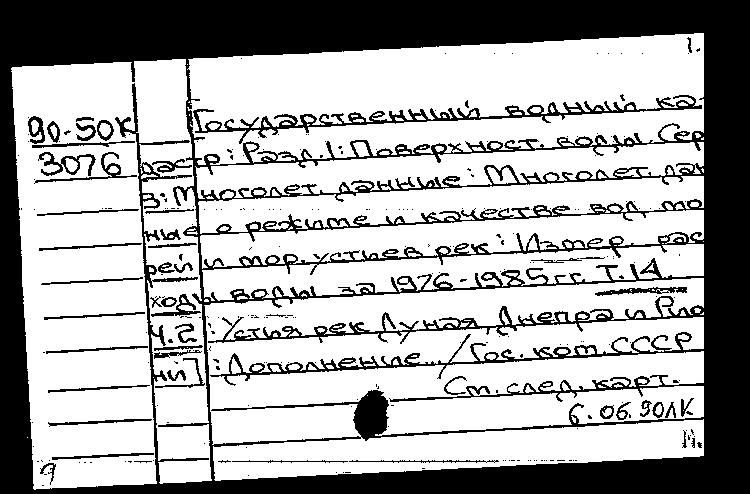 1.
90-50К Государственный водный ка-
3076 дастр: Разд. 1: Поверхност. воды. Сер.
3: Многолет. данные: Многолет. дан
ные о режиме и качестве вод мо
рей и мор. устьев рек: Измер. рас
ходы воды за 1976-1985 гг. Т. 14.
Ч. 2: Устья рек Дуная, Днепра и
ний]: Дополнение... / Гос. ком. СССР
Ст. след. карт.
6.06.90ЛК
М.
9